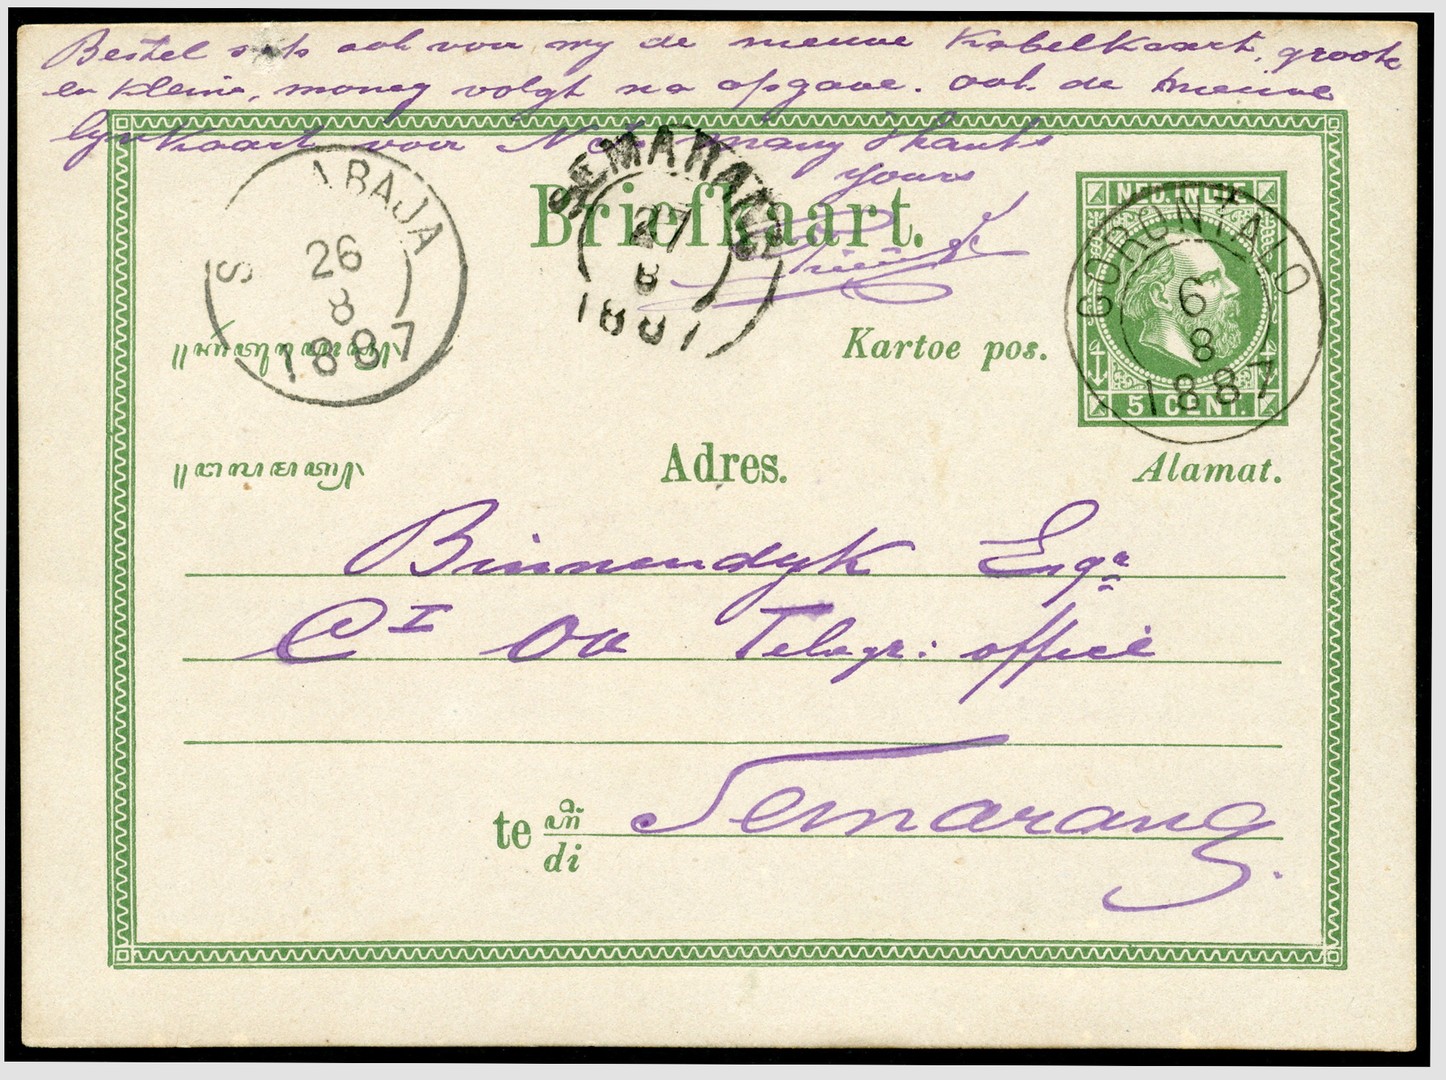 Bestel ook voor my de nieuwe Kabelkaart, groote
en kleine, money volgt na opgave. Ook de nieuwe
kaart voor N.O.I. many thanks
yours
SEMARANG
27
8
1887
S ABAJA
26
8
1887
GORONTALO
6
8
1887
NED. INDIE
5 CENT.
Briefkaart.
Kartoe pos.
Adres.
Alamat.
Binnendyk Esqr
CI Oa Telegr: office
te
di
Semarang.